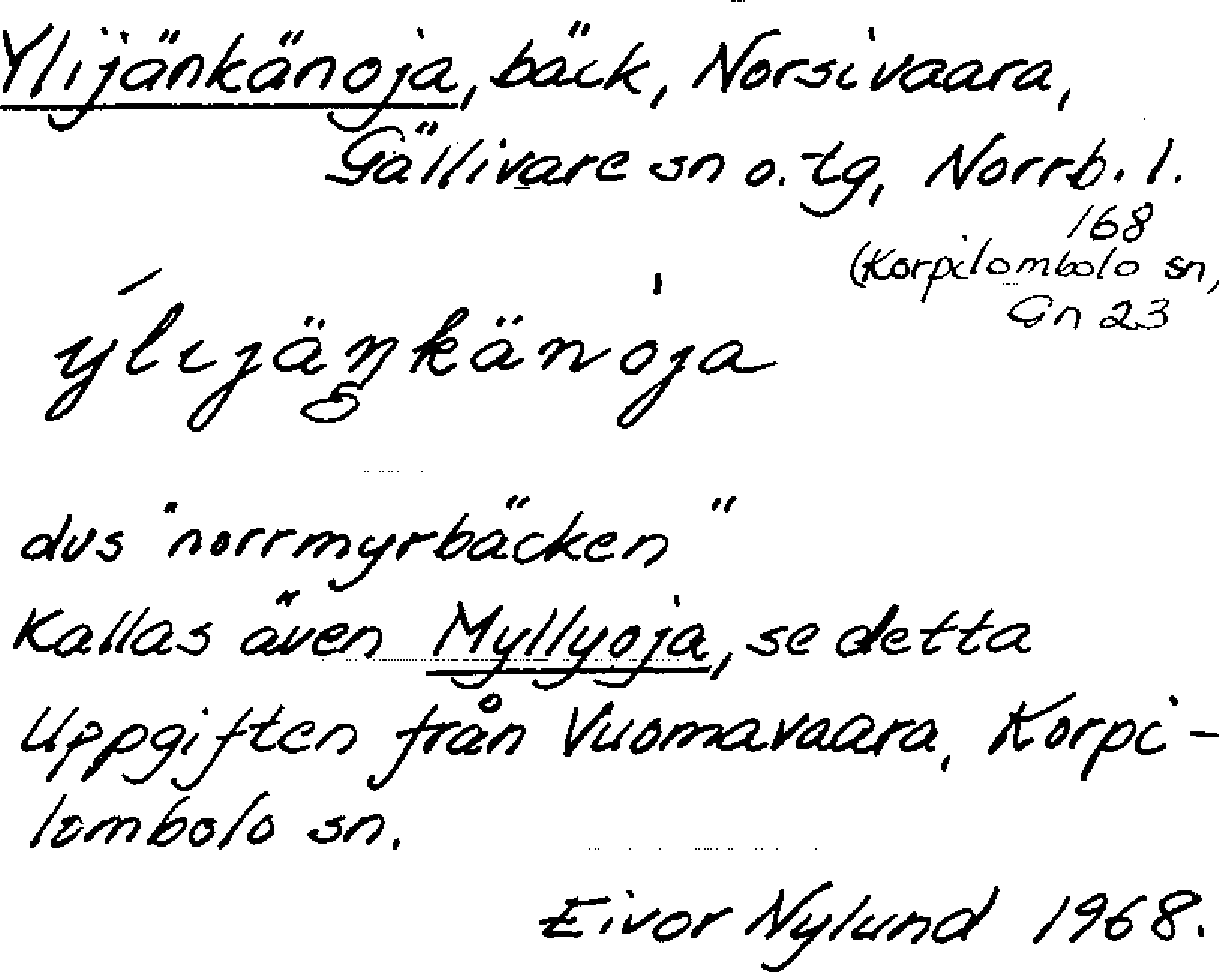 Ylijänkänoja, bäck, Norsivaara,
Gällivare sn o. tg, Norrb. l.
168
(Korpilombolo sn,
Gn 23
ýlijäŋkänòja
dvs "norrmyrbäcken"
Kallas även Myllyoja, se detta
Uppgiften från Vuomavaara, Korpi-
lombolo sn.
Eivor Nylund 1968.